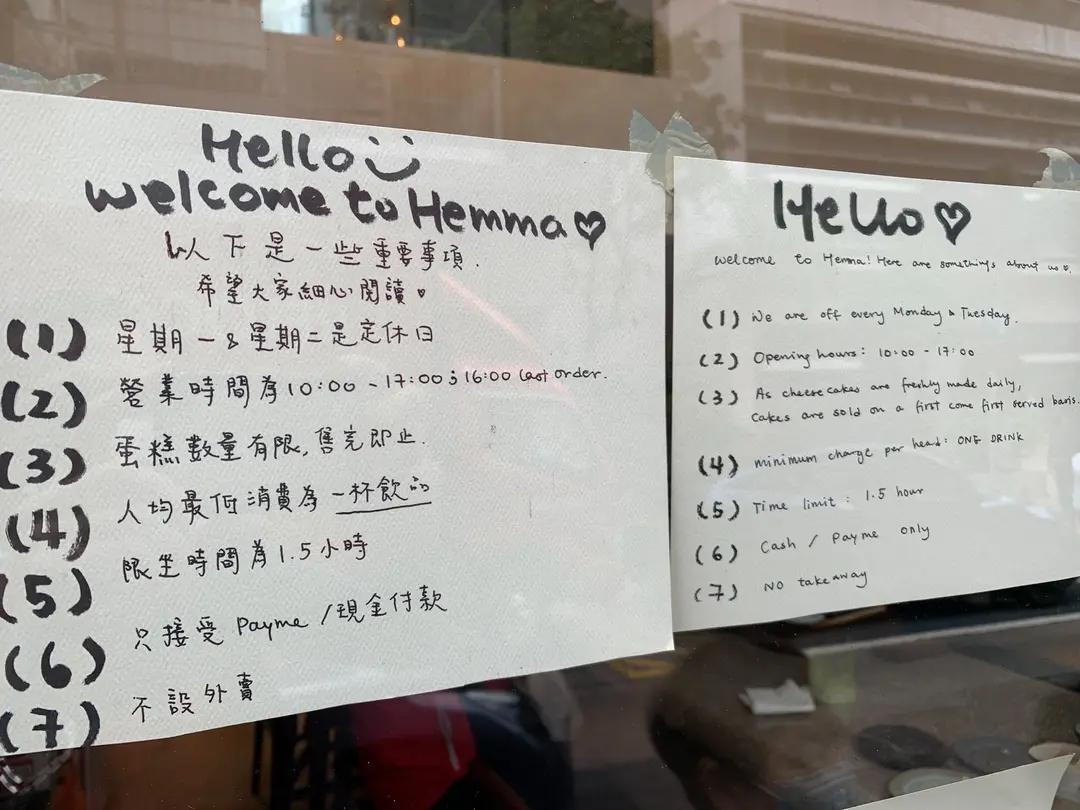 Hello
welcome to Hemma♡
以下是一些重要事項.
希望大家細心閱讀♥
(1) 星期一&星期二是定休日
(2) 營業時間為10:00 - 17:00;16:00 last order.
(3) 蛋糕數量有限,售完即止.
(4) 人均最低消費為一杯飲品
(5) 限坐時間為1.5小時
(6) 只接受 Payme /現金付款
(7) 不設外賣
Hello♡
welcome to Hemma! Here are somethings about us♡.
(1) We are off every Monday & Tuesday.
(2) Opening hours: 10:00 - 17:00
(3) As cheesecakes are freshly made daily,
cakes are sold on a first come first served basis.
(4) minimum charge per head: ONE DRINK
(5) Time limit : 1.5 hour
(6) Cash / Payme only
(7) NO takeaway